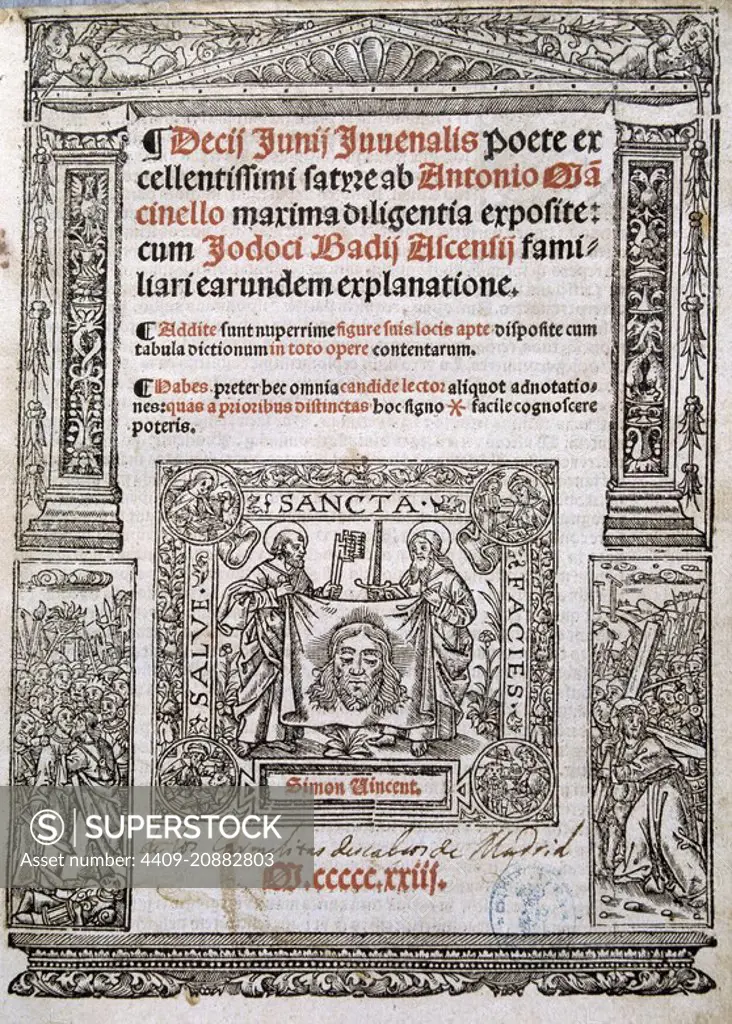 ¶ Decij Junij Juuenalis poete ex
cellentissimi satyre ab Antonio Mā
cinello maxima diligentia exposite:
cum Jodoci Badij Ascensij fami⸗
liari earundem explanatione.
¶ Addite sunt nuperrime figure suis locis apte disposite cum
tabula dictionum in toto opere contentarum.
¶ Habes preter hec omnia candide lector aliquot adnotatio⸗
nes: quas a prioribus distinctas hoc signo * facile cognoscere
poteris.
SANCTA.
SALVE.
FACIES.
Simon Uincent.
descalços de Madrid
M.ccccc.xxiij.
SUPERSTOCK
Asset number:
4409-20882803